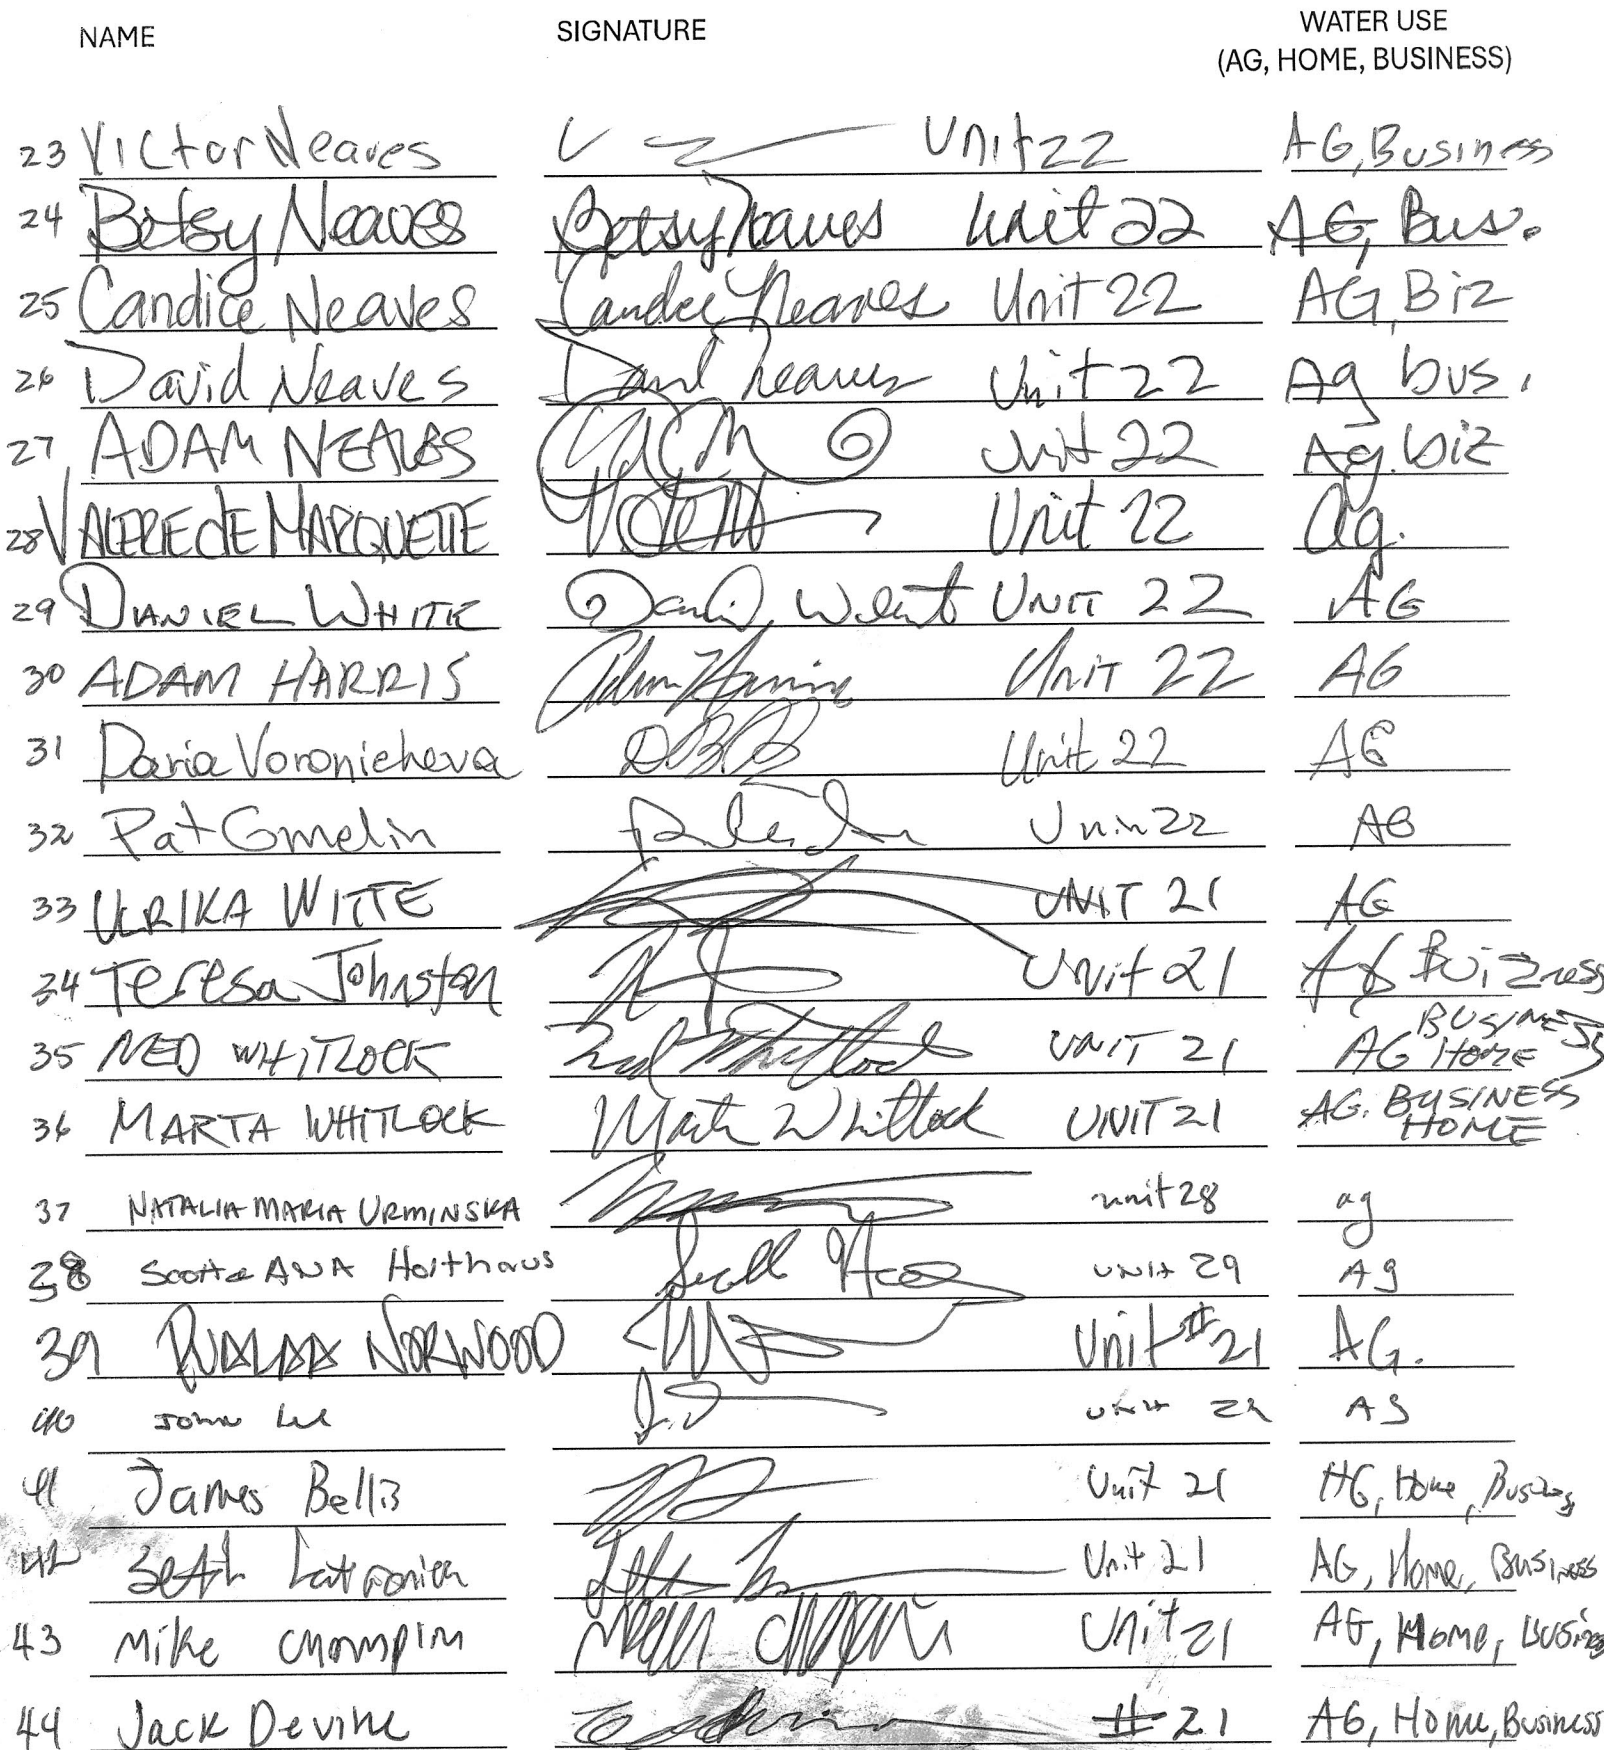 NAME SIGNATURE WATER USE
(AG, HOME, BUSINESS)
23 Victor Neaves Unit 22 AG, Business
24 Betsy Neaves Betsy Neaves Unit 22 AG, Bus.
25 Candice Neaves Candice Neaves Unit 22 AG, Biz
26 David Neaves David Neaves Unit 22 Ag bus.
27 ADAM NEAVES Unit 22 Ag. biz
28 VALERIE dE MARQUETTE Unit 22 Ag.
29 DANIEL WHITE UNIT 22 AG
30 ADAM HARRIS Adam Harris Unit 22 AG
31 Daria Voronicheva Unit 22 AG
32 Pat Gmelin 22 AG
33 ULRIKA WITTE UNIT 21 AG
34 Teresa Johnston Unit 21 Ag Buizness
35 NED WHITLOCK Ned Whitlock UNIT 21 AG BUSINESS HOME
36 MARTA WHITLOCK Marta Whitlock UNIT 21 AG. BUSINESS HOME
37 NATALIA MARIA URMINSKA unit 28 ag
38 Scott & ANA Holthaus Scott unit 29 Ag
39 NORWOOD Unit #21 AG.
40 John Lee unit Ag
41 James Bellis Unit 21 AG, Home, Business
42 Seth Unit 21 AG, Home, Business
43 Mike Champlin Unit 21 AG, Home, Business
44 Jack Devine #21 AG, Home, Business